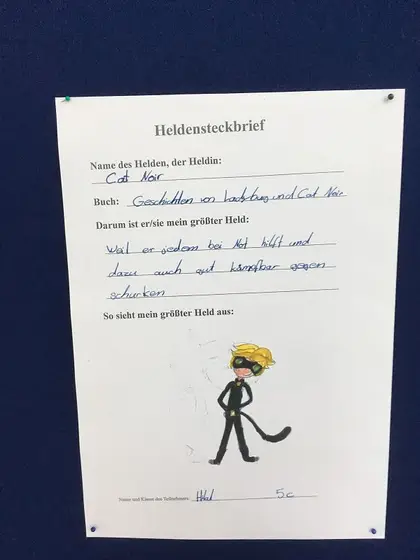 Heldensteckbrief
Name des Helden, der Heldin:
Cat Noir
Buch: Geschichten von Ladybug und Cat Noir
Darum ist er/sie mein größter Held:
Weil er jedem bei Not hilft und
dazu auch gut kämpfbar gegen
schurken
So sieht mein größter Held aus:
Name und Klasse des Teilnehmers: 5c